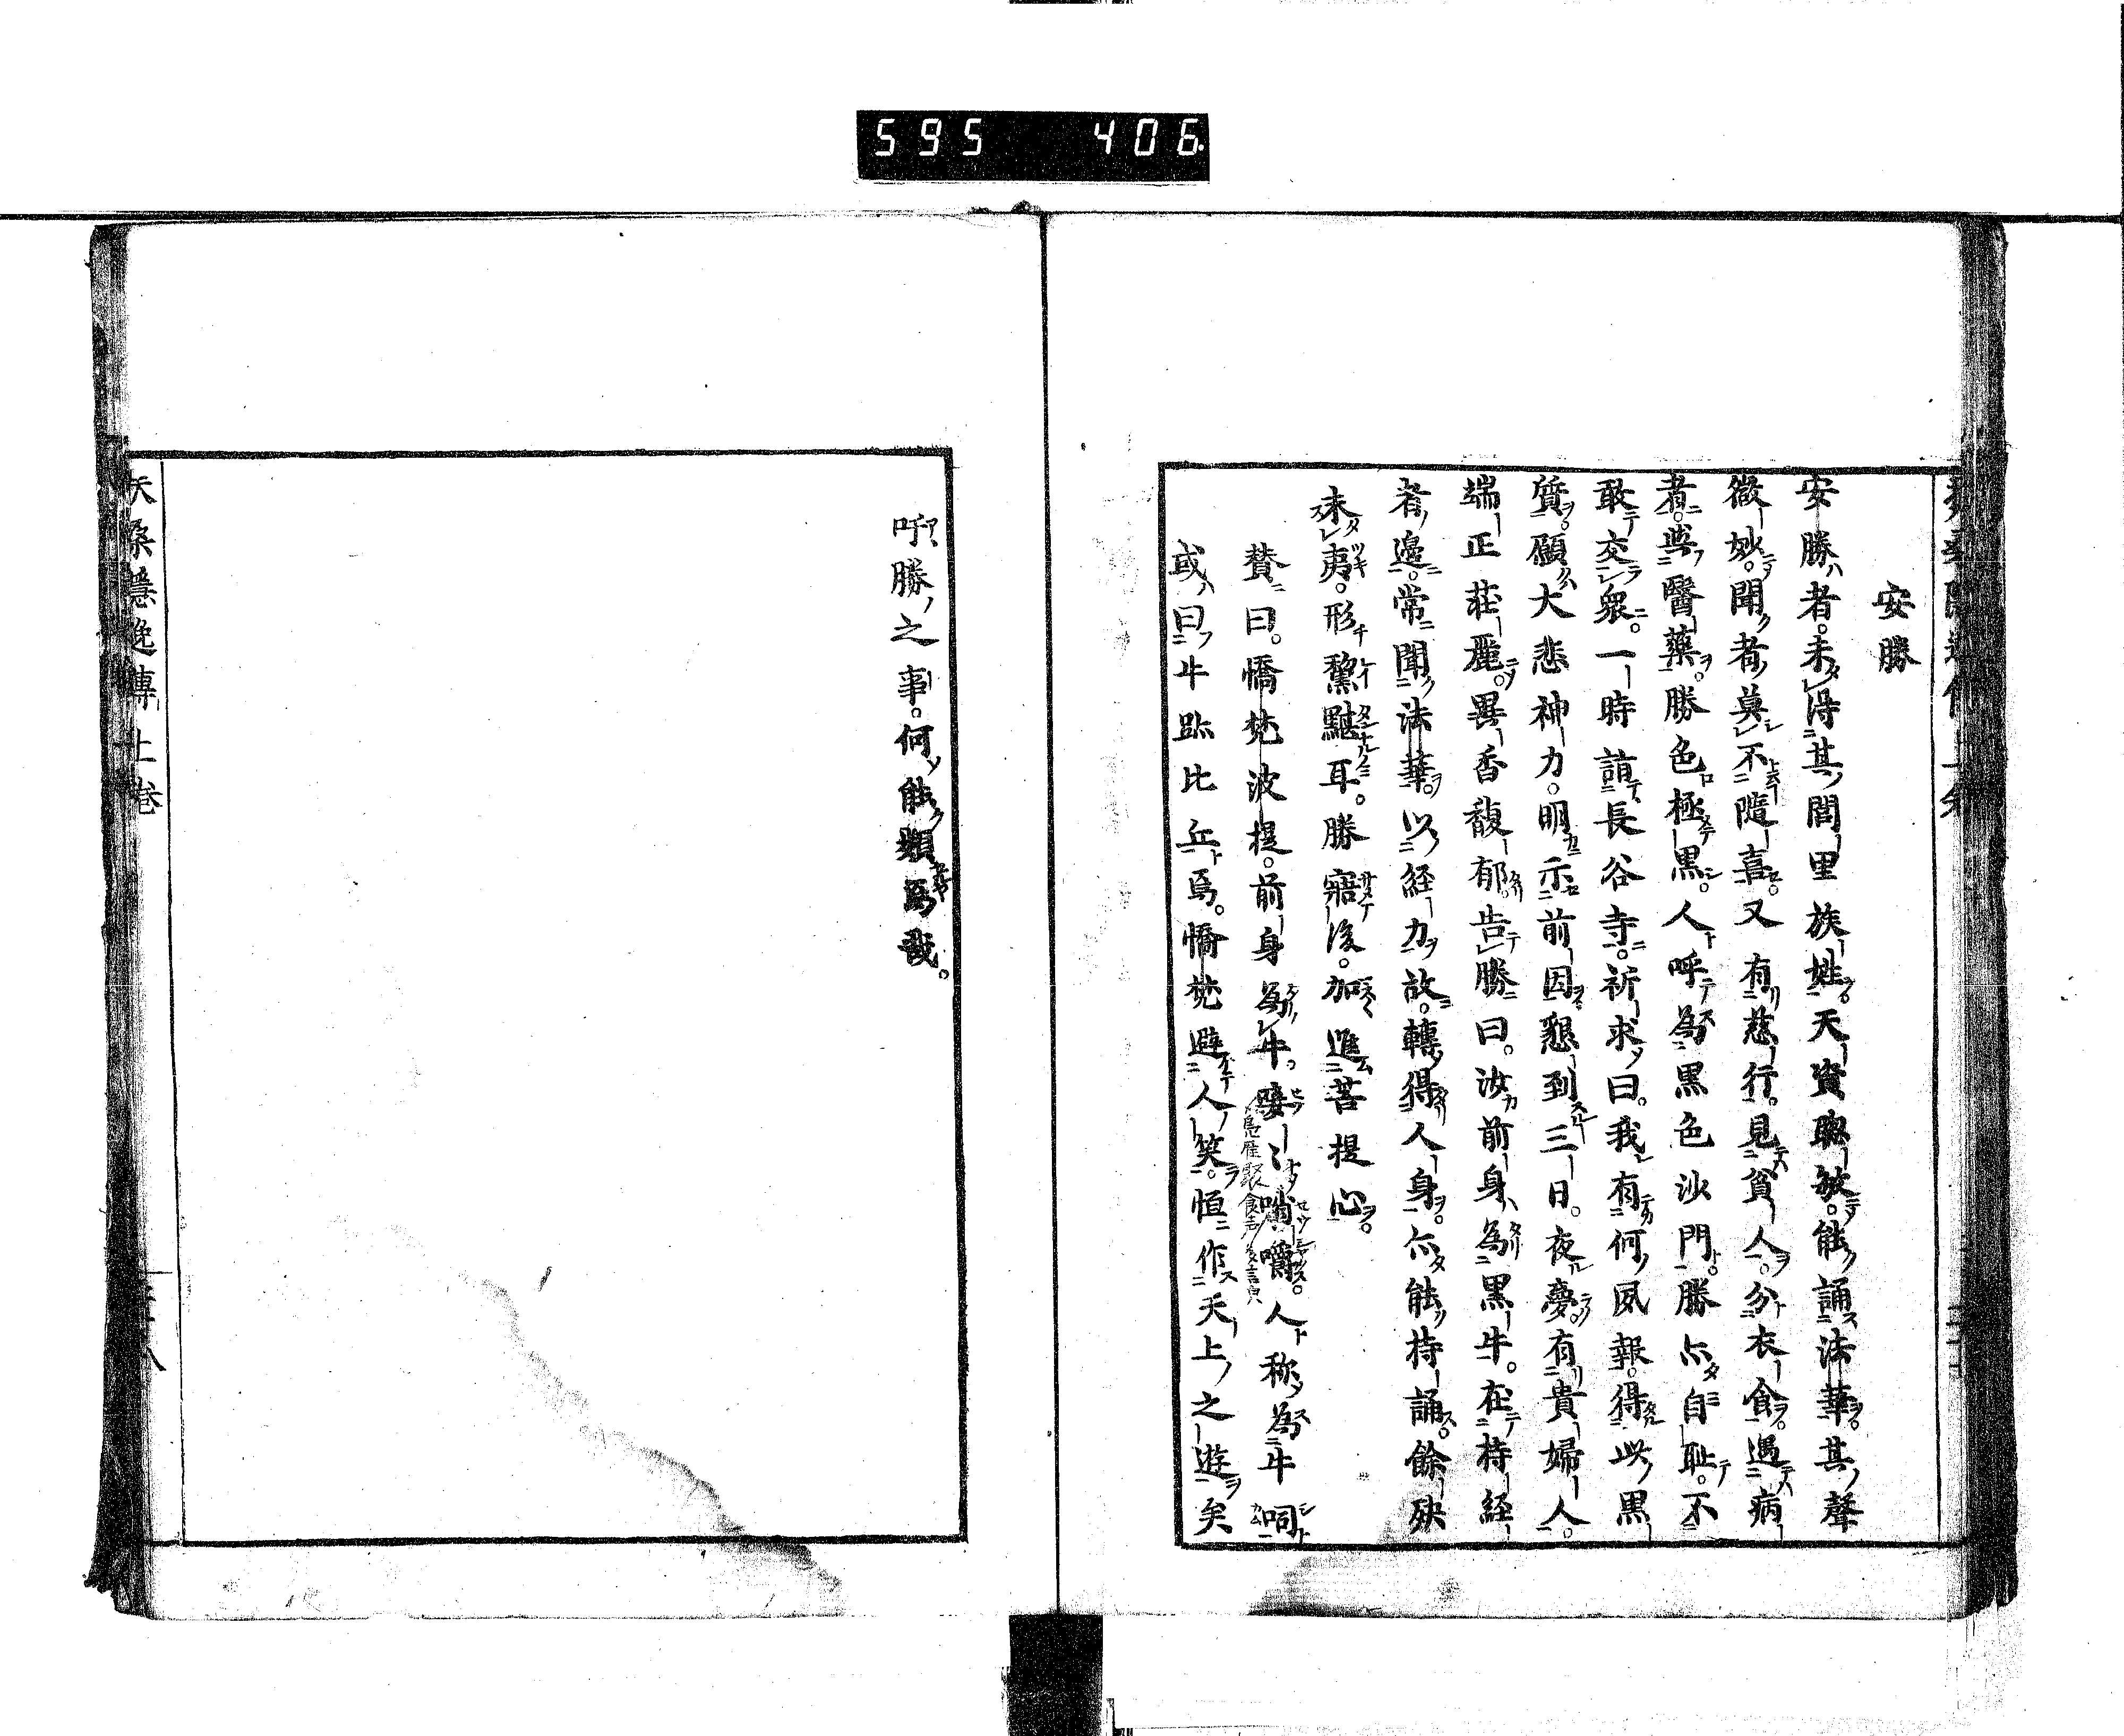 595 406
安勝
安勝者。未得其閭里族姓。天資聰敏。能誦法華。其聲
微妙。聞者莫不隨喜。又有慈行。見貧人。分衣食。遇病
者。與醫藥。勝色極黒。人呼為黒色沙門。勝亦自恥。不
敢交衆。一時詣長谷寺。祈求曰。我有何夙報。得此黒
質。願大悲神力。明示前因。懇到三日。夜夢。有貴婦人。
端正荘麗。異香馥郁。告勝曰。汝前身為黒牛。在持経
者邊。常聞法華。以経力故。轉得人身。亦能持誦。餘殃
未夷。形黧黮耳。勝寤後。加進菩提心。
賛曰。憍梵波提。前身為牛。唼〻嗋嚼。人称為牛呞
或曰牛跡比丘焉。憍梵避人笑。恒作天上之遊矣
呼勝之事。何能類焉哉。
扶桑隱逸傳上巻